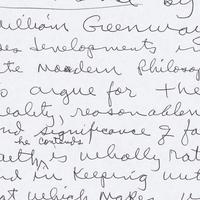 by
William Greenwa
ses developments in
the Modern Philosop
to argue for the
eality, reasonablen
nd significance of fa
he contends
aith is wholly rat
nd in keeping wit
at which makes u